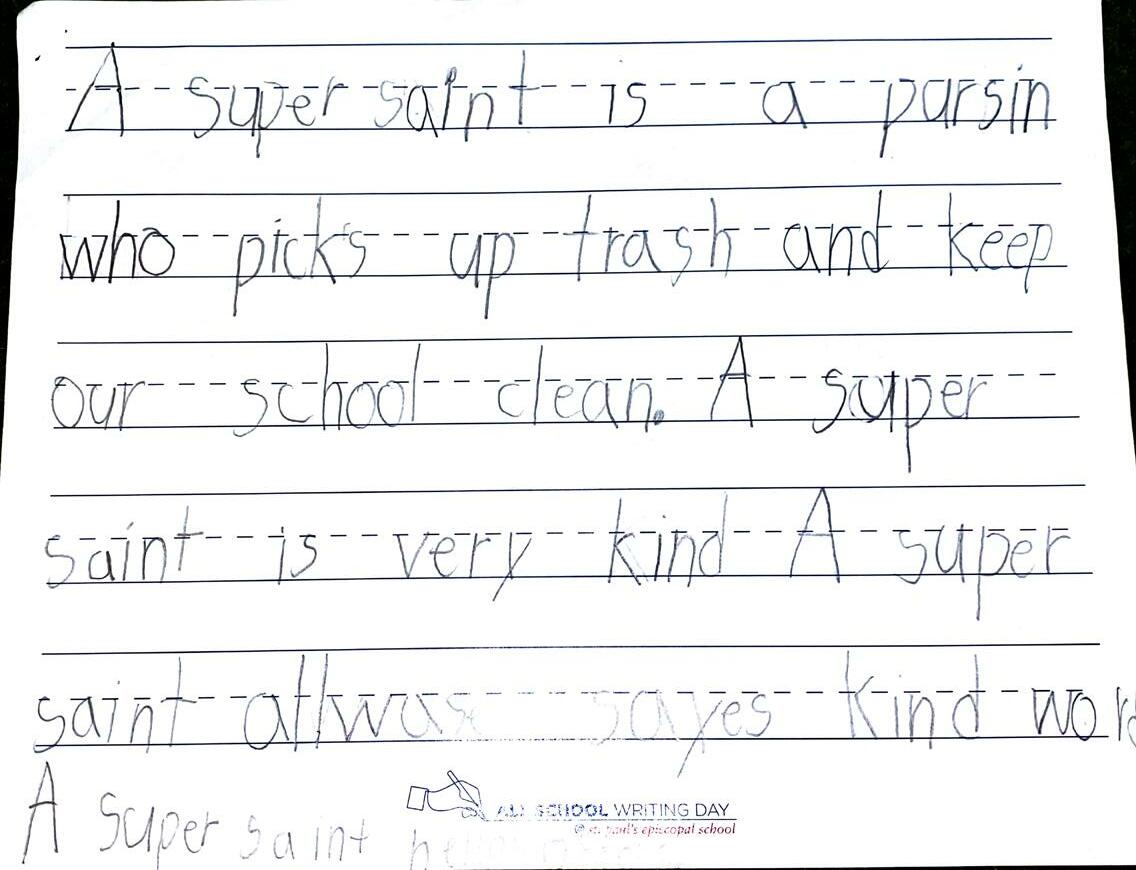 A super saint is a parsin
who picks up trash and keep
our school clean. A super
saint is very kind A super
saint allwase sayes kind
A super saint
ALL SCHOOL WRITING DAY
@ st. paul's episcopal school